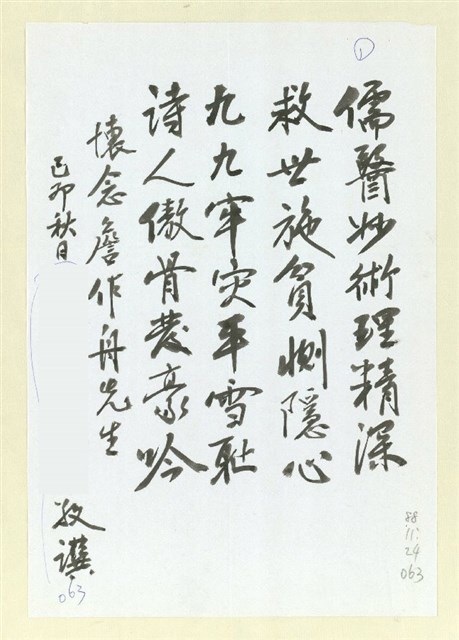 ①
儒醫妙術理精深
救世施貧惻隱心
九九牢災平雪恥
詩人傲骨發豪吟
懷念詹作舟先生
己卯秋日
敬撰
063
88.
11.
24
063